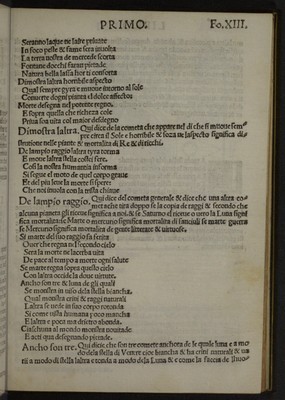 PRIMO. Fo. XIII.
Seranno laque ne laste priuate
In foco peste & fame sera inuolta
La terra nostra de mercede scorta
Fontane docchi faran pietade
Natura bella lassa fior ti conforta
Dimostra laltra horribile aspecto
Qual sempre gyra e moue intorno al sole
Conuerte dogni pianta el dolce affecto
Morte desegna nel potente regno.
E sopra quella che richeza cole
Priua sua vita col maior desdegno
Dimostra laltra. Qui dice de la cometa che appare nel di che si moue sem
pre circa il Sole e horribile & seca ne laspecto significa di
structione nelle piante & mortalita di Re & di ricchi.
De lampio raggio laltra tyra torma
E moue laltra stella costei fere.
Cosi la nostra humanita informa
Si segue el moto de quel corpo graue
Et del piu leue la morte si spere
Che noi inuola con la testa chiaue
De lampio raggio. Qui dice del cometa generale & dice che una altra co-
meta che tira doppo se la copia de raggi & secondo che
alcuna pianeta gli ricore significa a noi. & se Saturno el ricore o uero la Luna signi
fica mortalita: se Marte o mercurio significa mortalita di fanciuli se marte guerra
se Mercurio significa mortalita de gente litterate & virtuose.
Si marte del suo raggio sa ferita
Ouer che regna nel secondo cielo
Sera la morte ne lacerba vita
De pace al tempo a morte ogni salute
Se marte regna sopra questo cielo
Con laltra occide la doue virtute.
Ancho son tre & luna de gli quali
Se monstra in niso de la stella biancha.
Qual monstra crini & raggi naturali
Laltra se uede in suo corpo rotonda
Si come vista humana poco mancha
E laltra e poca ma drietro abonda.
Ciaschuna al mondo monstra nouitade
E acti qua desegnando pietade.
Ancho son tre. Qui dice, che son tre comete anchora de le quale luna e a mo
do de la stella di Venere cioe biancha & ha crini naturali & ua
rii a modo di stella laltra e tonda a modo de la Luna & e come la faccia de lhuo-